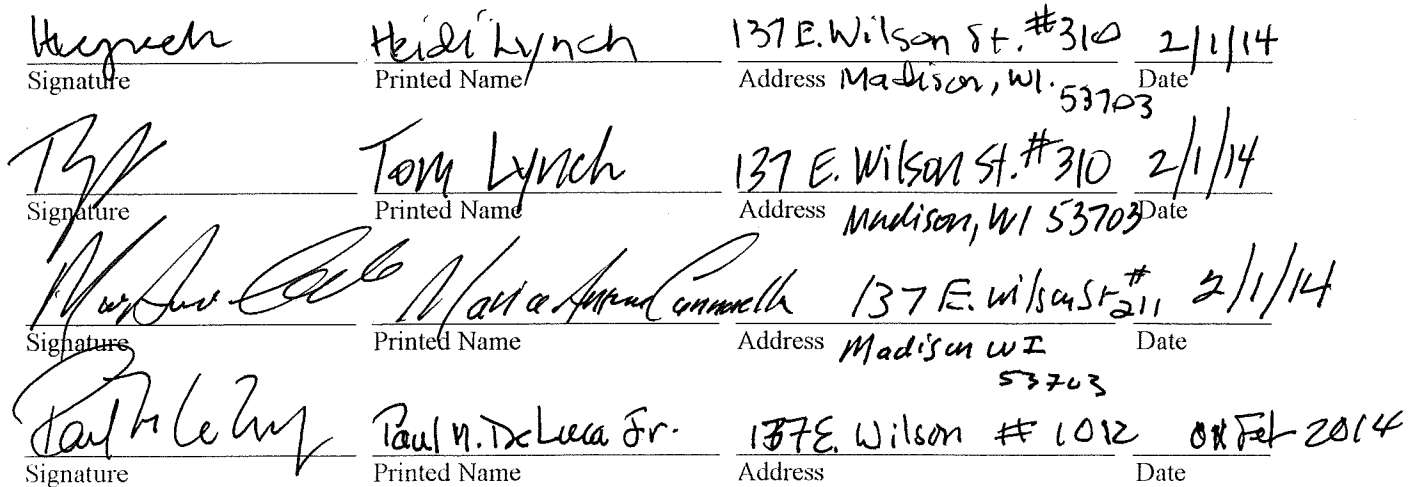 Heidi Lynch 137 E. Wilson St. #310 2/1/14
Signature Printed Name Address Madison, WI. 53703 Date
Tom Lynch 137 E. Wilson St. #310 2/1/14
Signature Printed Name Address Madison, WI 53703 Date
137 E. Wilson St #211 2/1/14
Signature Printed Name Address Madison WI 53703 Date
Paul M. DeLuca Jr. 137 E. Wilson # 1012 Feb 2014
Signature Printed Name Address Date